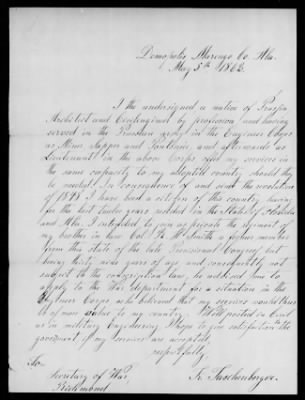 Demopolis Marengo Co. Ala.
May 5th 1863.
I the undersigned a native of Prussia
Architect and Civil engineer by profession and having
served in the Prussian army in the Engineer Corps
as Miner Sapper and Pontonier, and afterwards as
Lieutenant in the above Corps offer my services in
the same capacity to my adopted country should they
be needed. In consequence of and since the revolution
of 1848 I have been a citizen of this country having
for the last twelve years resided in the State of Florida
and Ala. I intended to join as private the regiment of
my brother in law Col. Smith a former member
from this state of the late Provisional Congress, but
being thirty nine years of age and consequently not
subject to the conscription law, he advised me to
apply to the War department for a situation in the
Engineer Corps as he believed that my services would thus
be of more value to my country. Well posted in civil
as in military Engineering I hope to give satisfaction to the
government if my services are accepted.
respectfully
To.
Secretary of War,
Richmond.